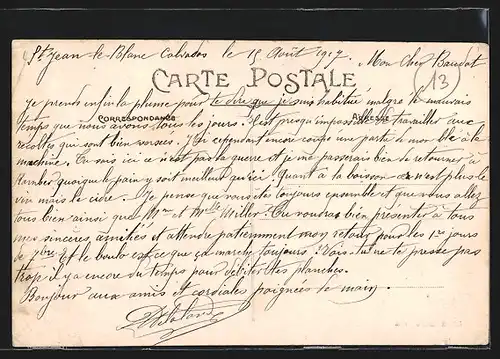 St Jean-le-Blanc Calvados le 15 Août 1917
Mon Cher Baudot
13
CARTE POSTALE
CORRESPONDANCE
ADRESSE
Je prends enfin la plume pour te dire que je suis habitué malgré le mauvais
temps que nous avons tous les jours. Il est presqu'impossible de travailler aux
récoltes qui sont bien versées. J'ai cependant encore coupé une partie de mon blé à la
machine. Tu sais ici ce n'est pas la guerre et je me passerais bien de retourner à
quoique le pain y soit meilleur qu'ici. Quant à la boisson ce n'est plus le
vin mais le cidre. Je pense que vous êtes toujours ensemble et que vous allez
tous bien ainsi que Mr et Mme Miller. Tu voudras bien présenter à tous
mes sincères amitiés et attendre patiemment mon retour pour les 1ers jours
de 7bre. Et le boulot est-ce que ça marche toujours? Vois-tu ne te presse pas
trop il y a encore du temps pour débiter des planches.
Bonjour aux amis et cordiales poignées de main.